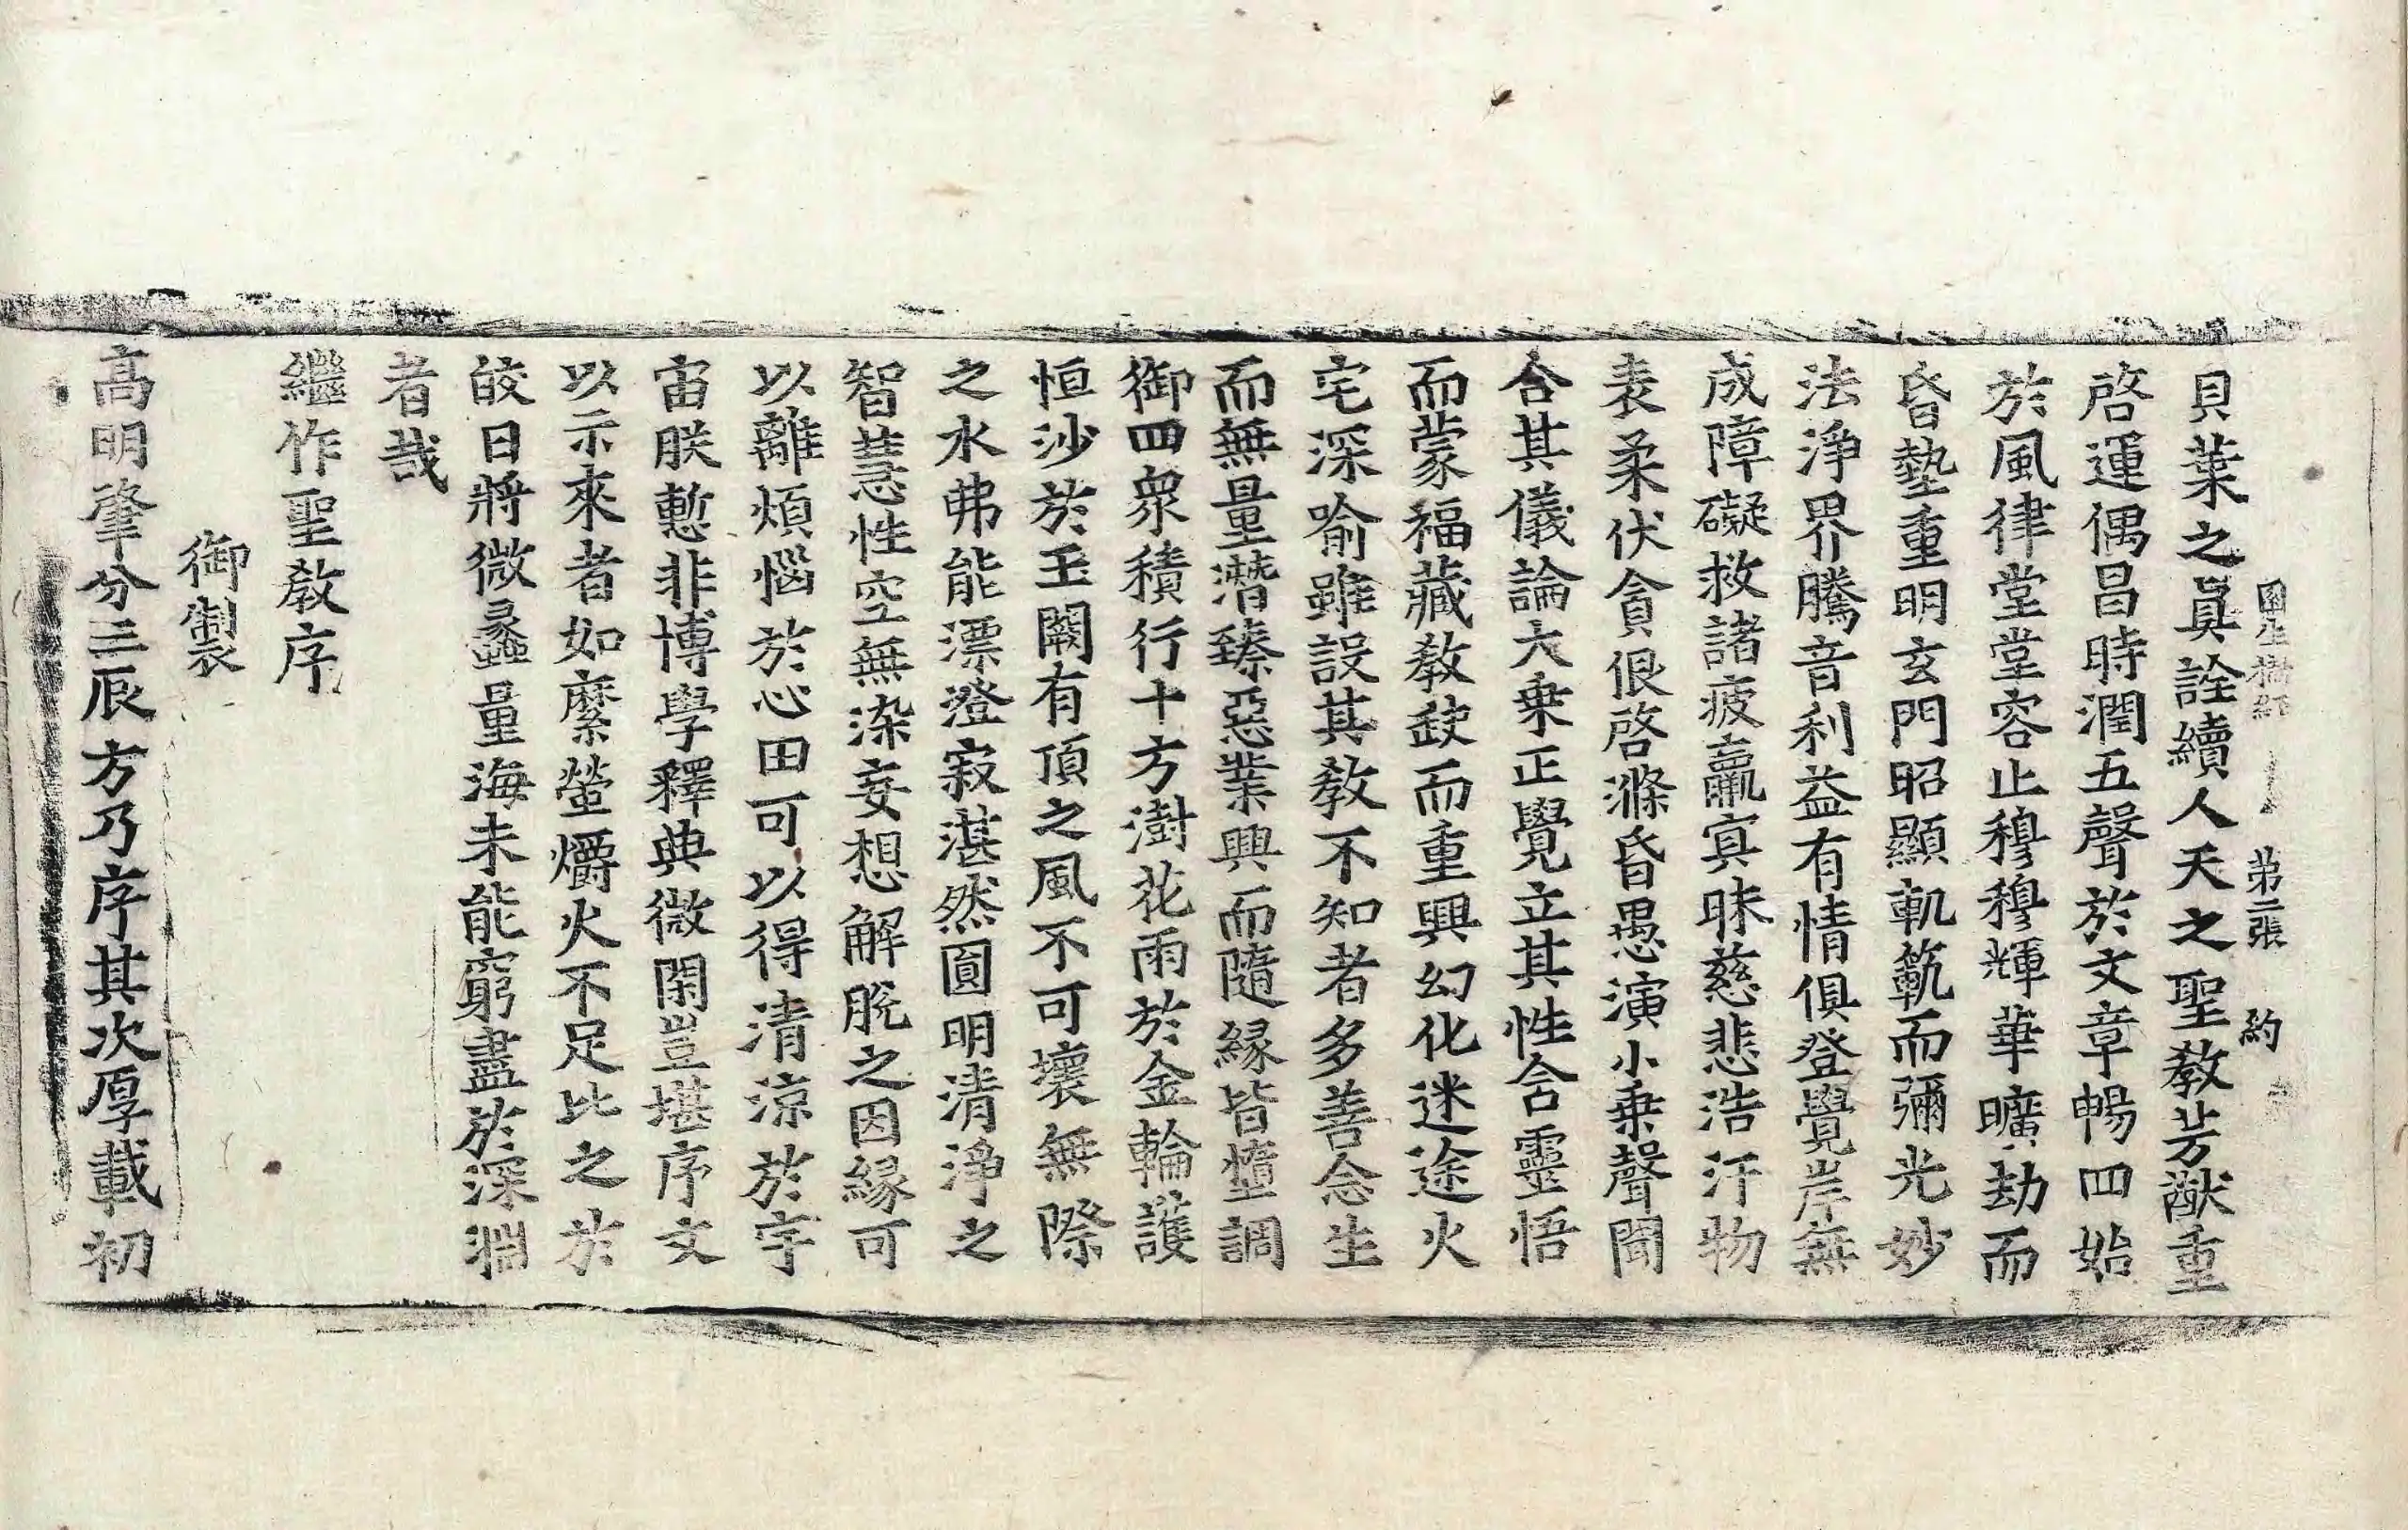 因生橋經 第二張 約
貝葉之眞詮續人天之聖教芳猷重
啓運偶昌時潤五聲於文章暢四始
於風律堂堂容止穆穆輝華曠劫而
昏墊重明玄門昭顯軌範而彌光妙
法淨界騰音利益有情俱登覺岸無
成障礙救諸疲羸㝠昧慈悲浩汗物
表柔伏貪佷啓滌昏愚演小乘聲聞
合其儀論大乘正覺立其性含靈悟
而蒙福藏教缺而重興幻化迷途火
宅深喻雖設其教不知者多善念生
而無量潛臻惡業興而隨緣皆墮調
御四衆積行十方澍花雨於金輪護
恒沙於玉闕有頂之風不可壞無際
之水弗能漂澄寂湛然圓明清淨之
智慧性空無染妄想解脫之因緣可
以離煩惱於心田可以得清涼於宇
宙朕慙非博學釋典微閑豈堪序文
以示來者如縻螢爝火不足比之於
皎日將微蠡量海未能窮盡於深淵
者哉
繼作聖教序
御製
高明肇分三辰方乃序其次厚載初